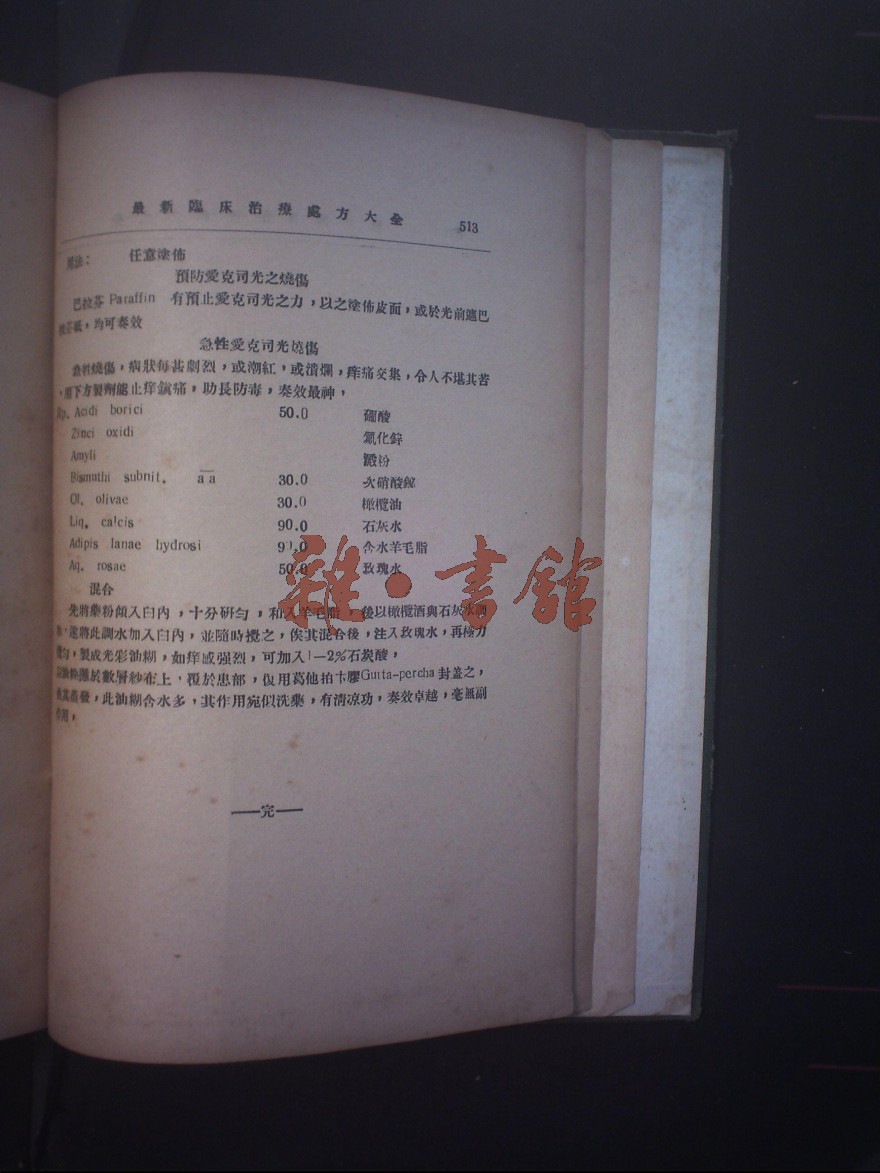 最新臨床治療處方大全 513
用法： 任意塗佈
預防愛克司光之燒傷
巴拉芬 Paraffin 有預止愛克司光之力，以之塗佈皮面，或於光前遮巴
芬紙，均可奏效
急性愛克司光燒傷
急性燒傷，病狀每甚劇烈，或潮紅，或潰爛，痒痛交集，令人不堪其苦
，用下方製劑能止痒鎮痛，助長防毒，奏效最神，
Rp. Acidi borici 50.0 硼酸
Zinci oxidi 氯化鋅
Amyli 澱粉
Bismuthi subnit. a a 30.0 次硝酸鉍
Ol. olivae 30.0 橄欖油
Liq. calcis 90.0 石灰水
Adipis lanae hydrosi 90.0 含水羊毛脂
Aq. rosae 50.0 玫瑰水
混合
先將藥粉傾入臼內，十分研勻，和入羊毛脂，後以橄欖酒與石灰水調
，能將此調水加入臼內，並隨時攪之，俟其混合後，注入玫瑰水，再極力
勻，製成光彩油糊，如痒感强烈，可加入1—2%石炭酸，
油糊攤於數層紗布上，覆於患部，復用葛他拍卡膠Gutta-percha封盖之，
其蒸發，此油糊含水多，其作用宛似洗藥，有清凉功，奏效卓越，毫無副
作用，
——完——
雜·書館